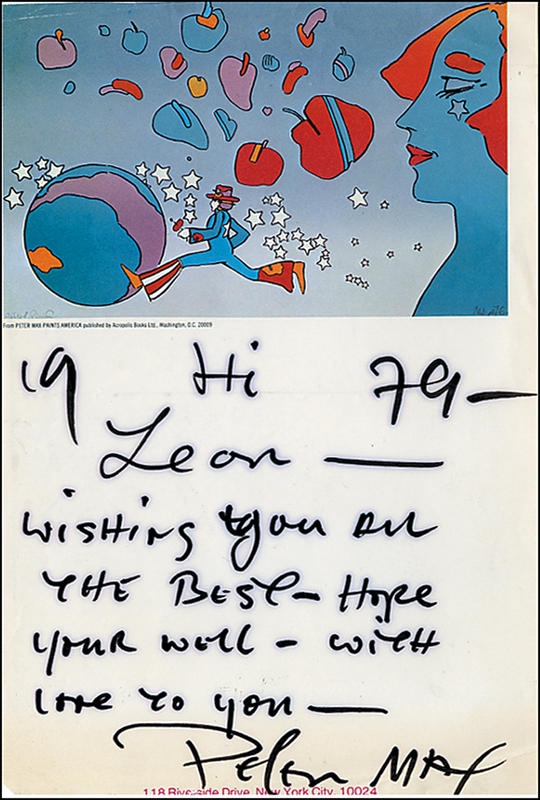 From PETER MAX PAINTS AMERICA published by Acropolis Books Ltd., Washington, D.C. 20009
19 Hi 79—
Leon —
wishing you all
THE BEST— Hope
your well — with
love to you —
Peter Max
118 Riverside Drive, New York City, 10024